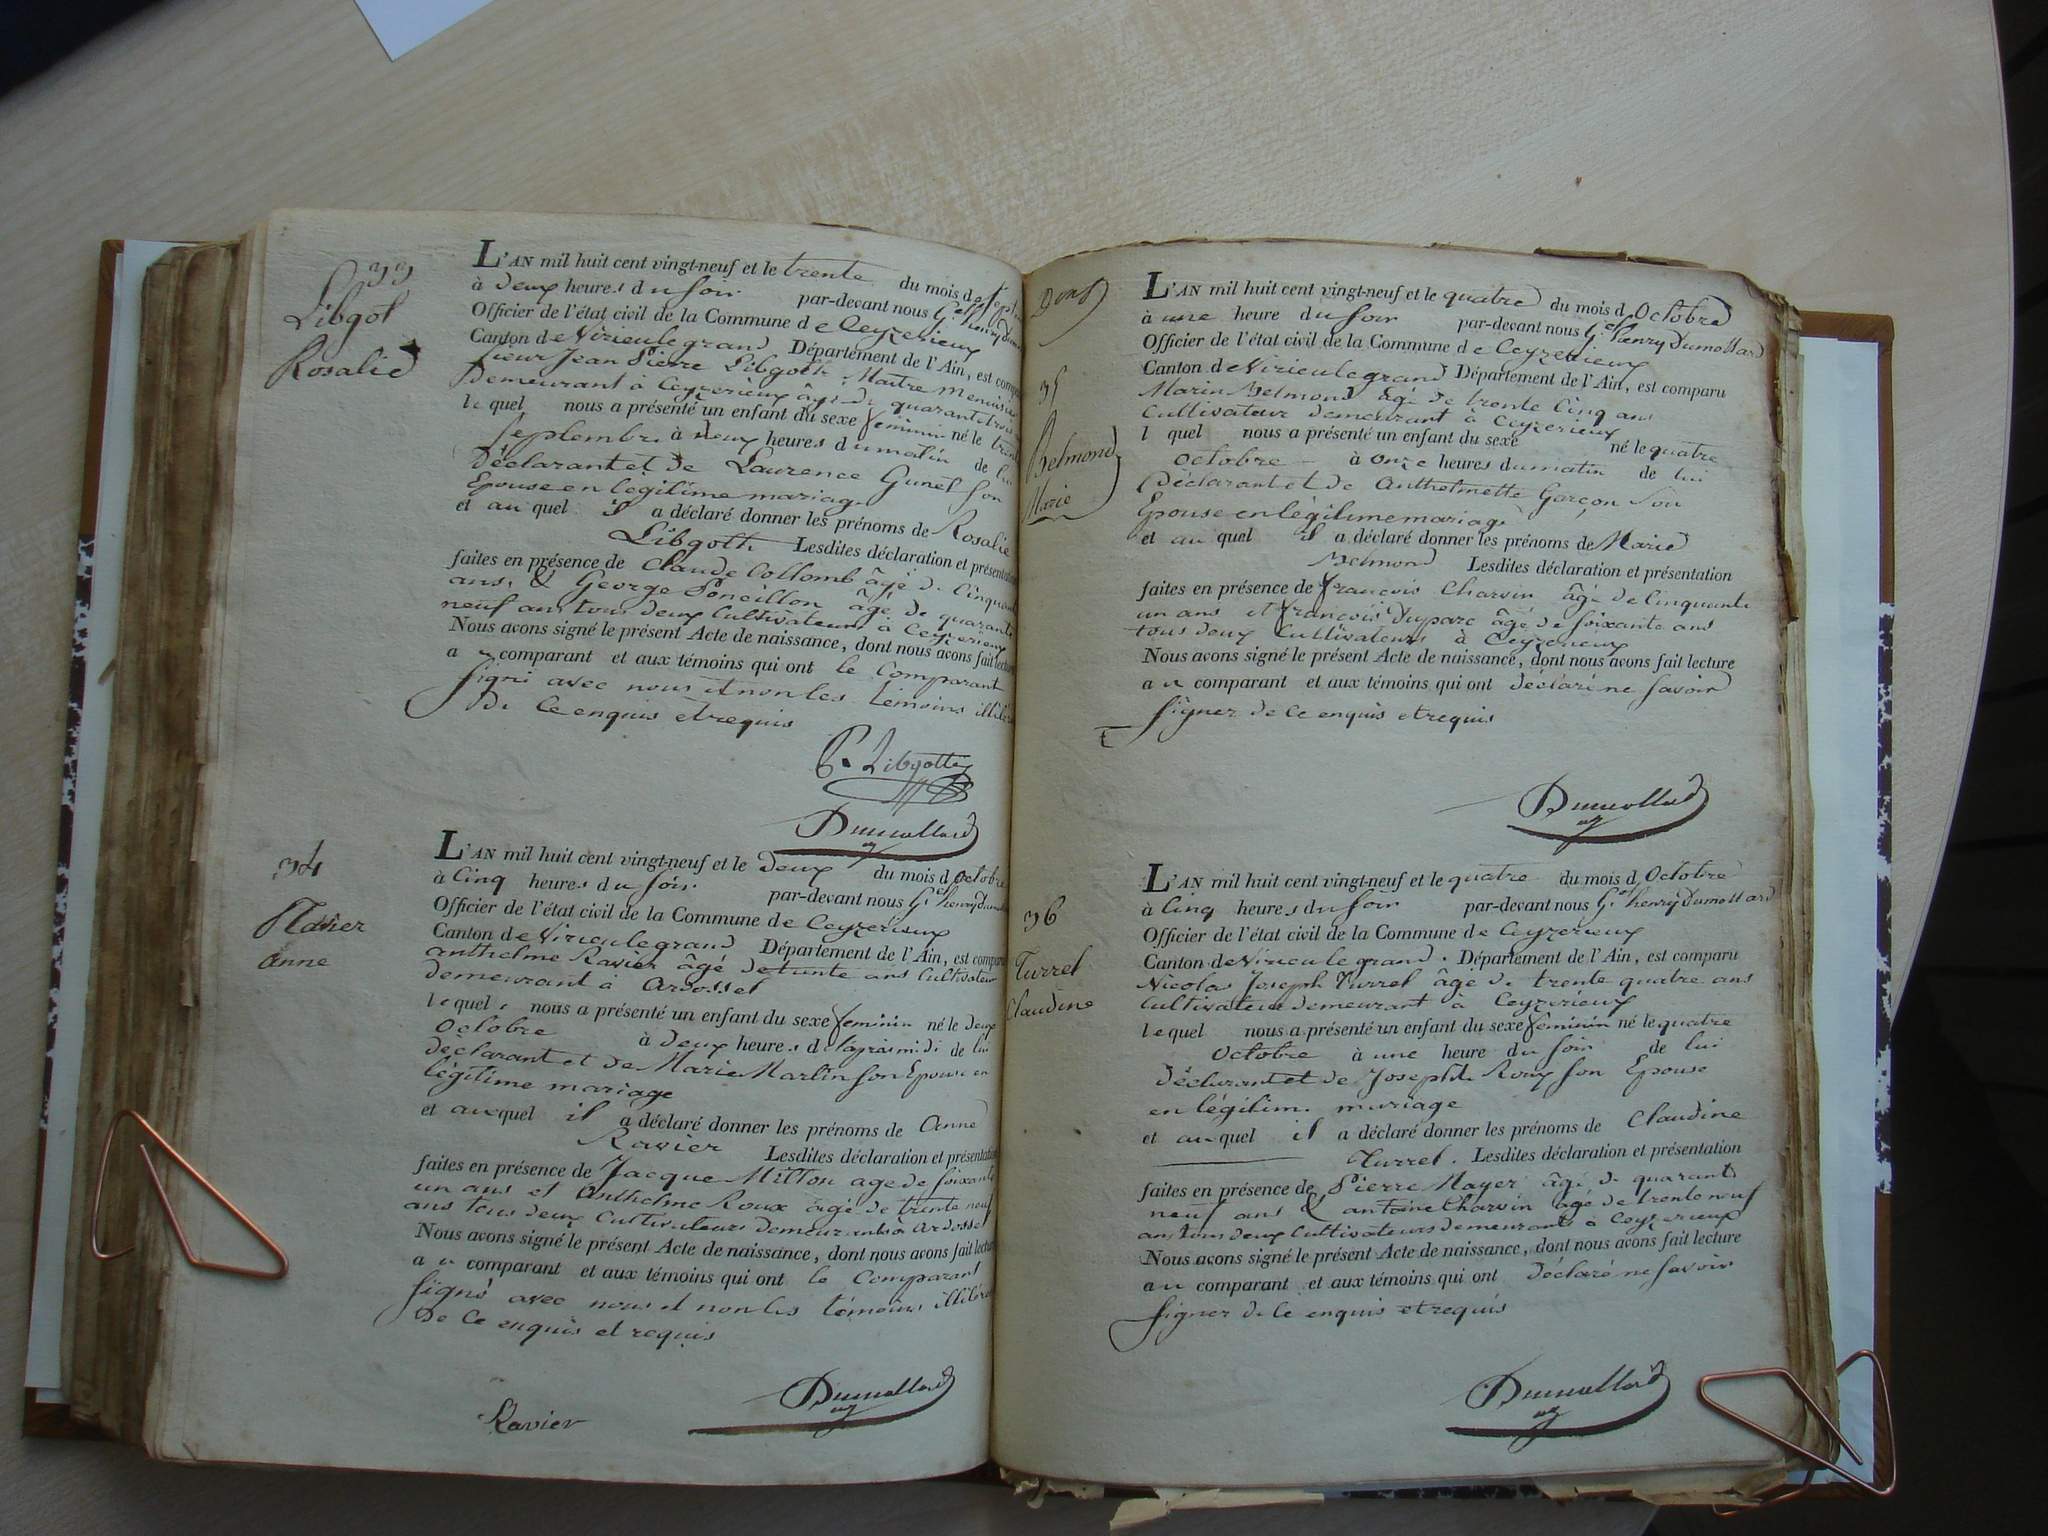 33
Libgot
Rosalie
L'AN mil huit cent vingt-neuf et le trente du mois de
à deux heures du soir par-devant nous G.el henry
Officier de l'état civil de la Commune de Ceyzerieux
Canton de Virieulegrand Département de l'Ain, est
sieur Jean Pierre Libgoth, Maître Menuisier
Demeurant à Ceyzerieux âgé de quarante trois
le quel nous a présenté un enfant du sexe feminin né le
septembre à deux heures du matin de lui
Déclarant et de Laurence Gunet son
Epouse en légitime mariage
et au quel il a déclaré donner les prénoms de Rosalie
Libgoth Lesdites déclaration et présentation
faites en présence de Claude Collomb âgé de Cinquante
ans, & George Poncillon âgé de quarante
neuf ans tous deux Cultivateurs à Ceyzerieux
Nous avons signé le présent Acte de naissance, dont nous avons fait lecture
au comparant et aux témoins qui ont le Comparant
signé avec nous et non les témoins
De Ce enquis et requis
P. Libgotte
Dumollard
34
Ravier
Anne
L'AN mil huit cent vingt-neuf et le Deux du mois d Octobre
à Cinq heures du soir par-devant nous G.el henry
Officier de l'état civil de la Commune de Ceyzerieux
Canton de Virieulegrand Département de l'Ain, est
anthelme Ravier âgé de trente ans Cultivateur
demeurant à Ardosset
le quel nous a présenté un enfant du sexe feminin né le deux
Octobre à deux heures de l'apraismidi de lui
déclarant et de Marie Martin son Epouse en
légitime mariage
et au quel il a déclaré donner les prénoms de Anne
Ravier Lesdites déclaration et présentation
faites en présence de Jacque Mitton age de soixante
un ans et Anthelme Roux âgé de trente neuf
ans tous deux Cultivateurs demeurants à Ardosset
Nous avons signé le présent Acte de naissance, dont nous avons fait lecture
au comparant et aux témoins qui ont le Comparant
signé avec nous et non les témoins
De Ce enquis et requis
Ravier Dumollard
35
Belmond
Marie
L'AN mil huit cent vingt-neuf et le quatre du mois d Octobre
à une heure du soir par-devant nous G.el henry Dumollard
Officier de l'état civil de la Commune de Ceyzerieux
Canton de Virieulegrand Département de l'Ain, est comparu
Marin Belmond âgé de trente Cinq ans
Cultivateur demeurant à Ceyzerieux
l quel nous a présenté un enfant du sexe né le quatre
octobre à onze heures du matin de lui
Déclarant et de Anthelmette Garçon son
Epouse en légitime mariage
et au quel il a déclaré donner les prénoms de Marie
Belmond Lesdites déclaration et présentation
faites en présence de françois Charvin âgé de Cinquante
un ans et françois Duparc âgé de soixante ans
tous deux Cultivateurs à Ceyzerieux
Nous avons signé le présent Acte de naissance, dont nous avons fait lecture
au comparant et aux témoins qui ont déclaré ne savoir
signer de Ce enquis et requis
Dumollard
36
Turrel
Claudine
L'AN mil huit cent vingt-neuf et le quatre du mois d Octobre
à Cinq heures du soir par-devant nous G.el henry Dumollard
Officier de l'état civil de la Commune de Ceyzerieux
Canton de Virieulegrand. Département de l'Ain, est comparu
Nicolas Joseph Turrel âgé de trente quatre ans
Cultivateur demeurant à Ceyzerieux
le quel nous a présenté un enfant du sexe feminin né le quatre
Octobre à une heure du soir de lui
déclarant et de Josephte Roux son Epouse
en légitime mariage
et au quel il a déclaré donner les prénoms de Claudine
Turrel. Lesdites déclaration et présentation
faites en présence de Pierre Mayer âgé de quarante
neuf ans & antoine Charvin âgé de trente neuf
ans tous deux Cultivateurs demeurants à Ceyzerieux
Nous avons signé le présent Acte de naissance, dont nous avons fait lecture
au comparant et aux témoins qui ont déclaré ne savoir
signer de Ce enquis et requis
Dumollard